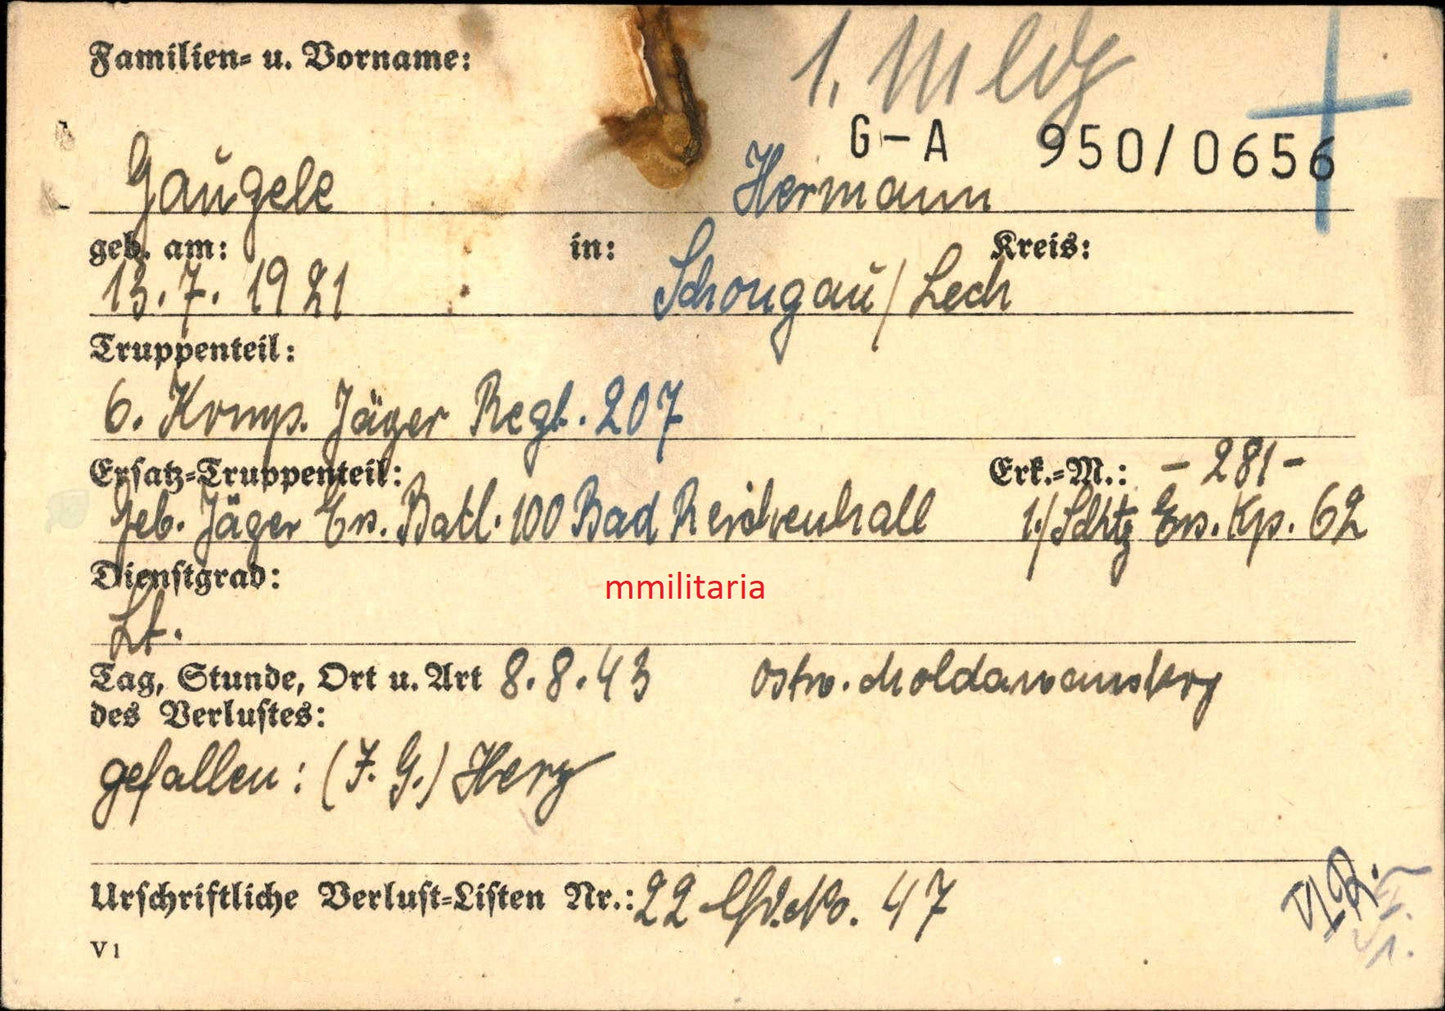 1. Meldg
Familien- u. Vorname:
G-A 950/0656
Gaugele Hermann
geb. am: in: Kreis:
13.7.1921 Schongau/Lech
Truppenteil:
6. Komp. Jäger Regt. 207
Ersatz-Truppenteil: Erk.-M.: - 281 -
Geb. Jäger Ers. Batl. 100 Bad Reichenhall 1./Schtz Ers. Kp. 62
Dienstgrad:
mmilitaria
Lt.
Tag, Stunde, Ort u. Art 8.8.43 ostw. Moldawanskoj
des Verlustes:
gefallen: (J. G.) Herz
Urschriftliche Verlust-Listen Nr.: 22 lfd. No. 47
V 1